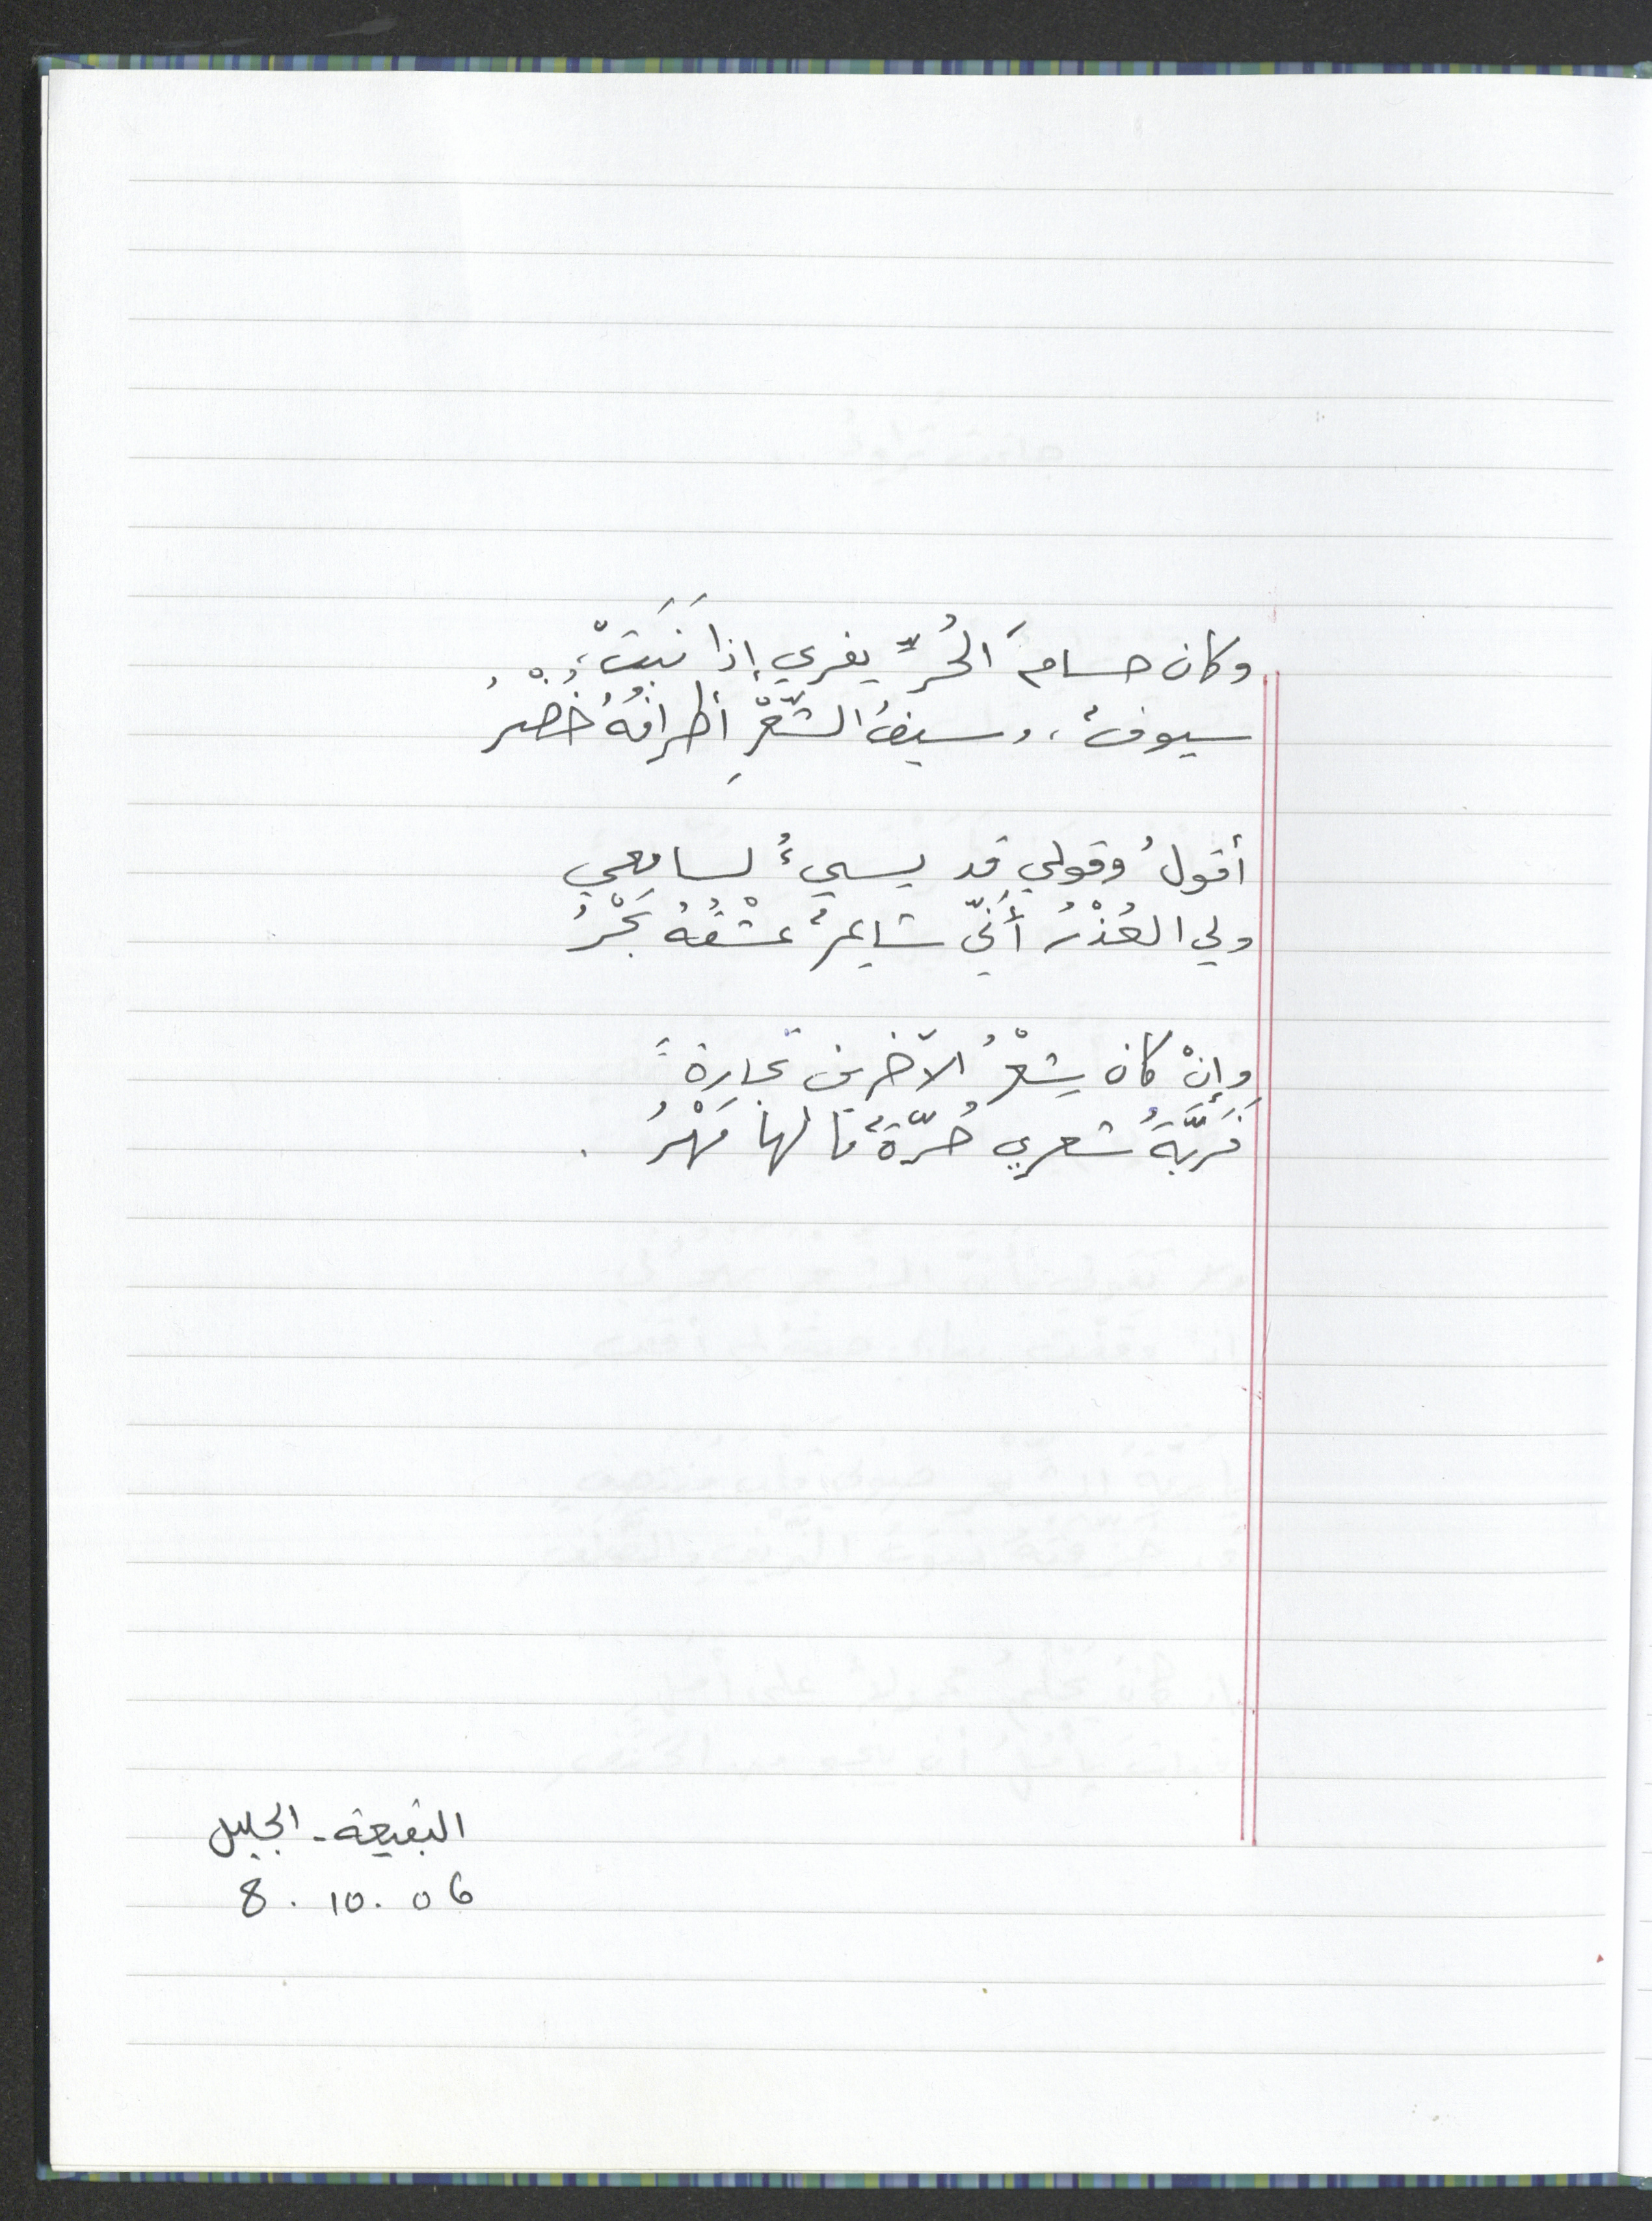 وكان حسامَ الحُرِّ يفري إذا نَبَتْ،
سيوفٌ، وسيفُ الشّعْرِ أطرافُهُ خُضْرُ
أقولُ وقولي قد يسيءُ لسامعي
ولي العُذْرُ أنّي شاعرٌ عشْقُهُ بَحْرُ
وإنْ كان شِعْرُ الآخرين تجارةً
فَرَبَّةُ شعري حُرّةٌ مَا لها مَهْرُ .
البقيعة - الجليل
8 . 10 . 06